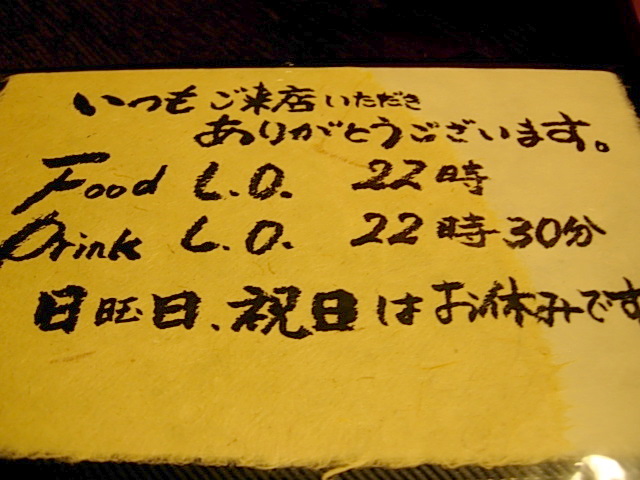 いつもご来店いただき
ありがとうございます。
Food L.O. 22時
Drink L.O. 22時30分
日旺日、祝日はお休みです